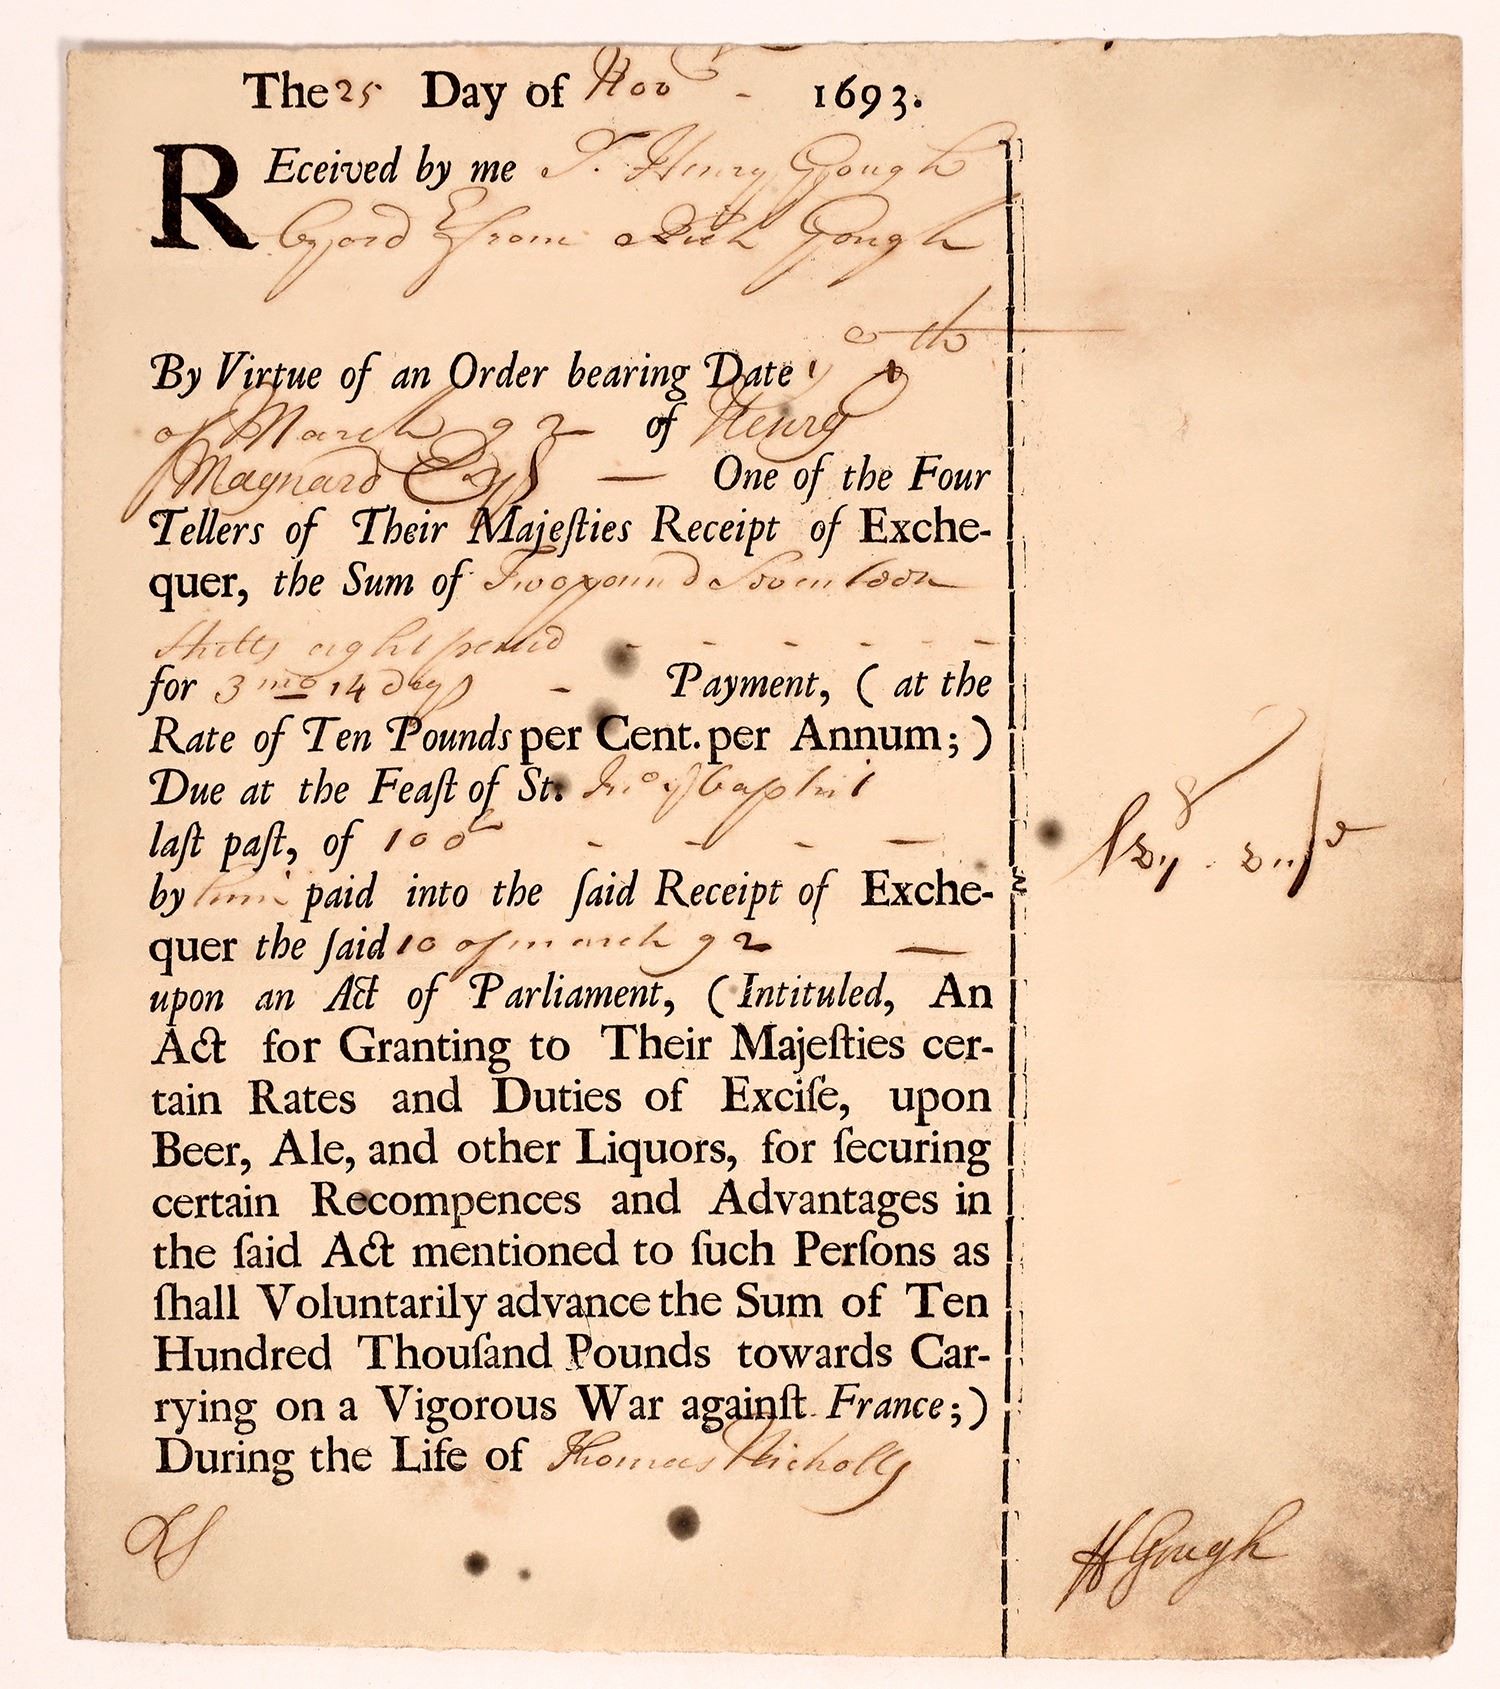 The 25 Day of Nov 1693.
REceived by me Sr. Henry Gough
by ord from Rich Gough
By Virtue of an Order bearing Date
of March 92 of Henry
Maynard Esqr — One of the Four
Tellers of Their Majeſties Receipt of Exche-
quer, the Sum of Two pound Seventeen
Shills eight pence - - - - - -
for 3 mo 14 days - Payment, (at the
Rate of Ten Pounds per Cent. per Annum;)
Due at the Feaſt of St. Jno Bapti
laſt paſt, of 100 L - - - —
by him paid into the ſaid Receipt of Exche-
quer the ſaid 10 of march 92 —
upon an Act of Parliament, (Intituled, An
Act for Granting to Their Majeſties cer-
tain Rates and Duties of Exciſe, upon
Beer, Ale, and other Liquors, for ſecuring
certain Recompences and Advantages in
the ſaid Act mentioned to ſuch Perſons as
ſhall Voluntarily advance the Sum of Ten
Hundred Thouſand Pounds towards Car-
rying on a Vigorous War againſt France;)
During the Life of Thomas Nicholls
H Gough